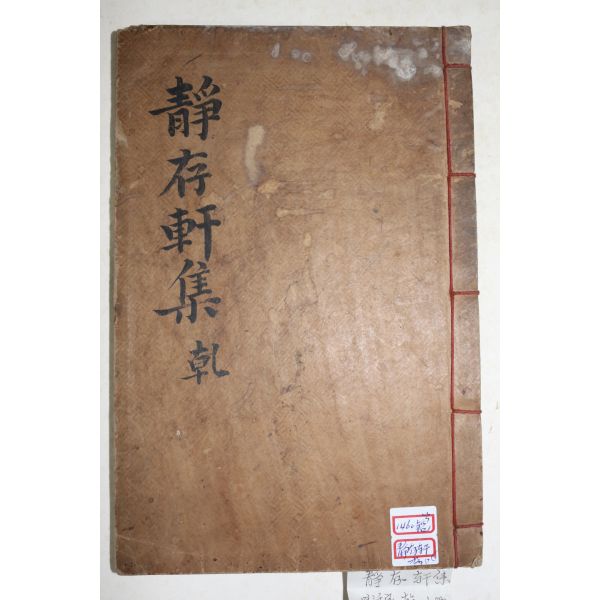 靜存軒集 乾
1460
靜存軒
靜存軒集